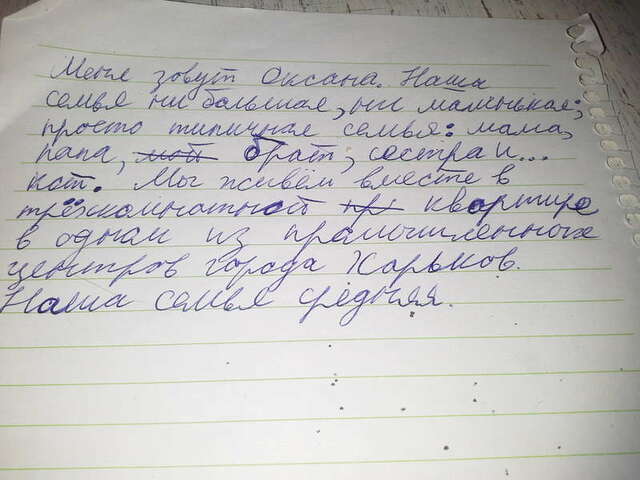 Меня зовут Оксана. Наша
семья ни большая, ни маленькая;
просто типичная семья: мама,
папа, мой брат, сестра и...
кот. Мы живём вместе в
трёхкомнатной пр квартире
в одном из промышленных
центров города Харьков.
Наша семья средняя.